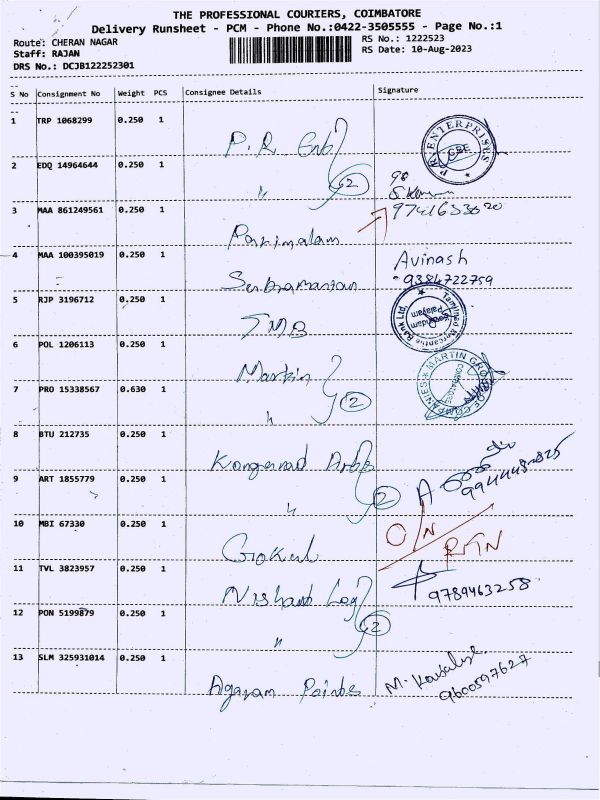 THE PROFESSIONAL COURIERS, COIMBATORE
Delivery Runsheet - PCM - Phone No.:0422-3505555 - Page No.:1
Route: CHERAN NAGAR RS No.: 1222523
Staff: RAJAN RS Date: 10-Aug-2023
DRS No.: DCJB122252301
S No Consignment No Weight PCS Consignee Details Signature
1 TRP 1068299 0.250 1 P.R. Ent P.R. ENTERPRISES CBE
2 EDQ 14964644 0.250 1 " 2
3 MAA 861249561 0.250 1 Parimalam
4 MAA 100395019 0.250 1 Subramanian Avinash 9384722759
5 RJP 3196712 0.250 1 TMB Tamilnad Mercantile Bank Ltd. Palayam
6 POL 1206113 0.250 1 Martin MARTIN GROUP OF COMPANIES
7 PRO 15338567 0.630 1 " 2
8 BTU 212735 0.250 1
9 ART 1855779 0.250 1 " 2
10 MBI 67330 0.250 1 Gokul O/N RTN
11 TVL 3823957 0.250 1 Nishant Log 9789463258
12 PON 5199879 0.250 1 " 2
13 SLM 325931014 0.250 1 Agaram Paints M. Kousalya 9600597627